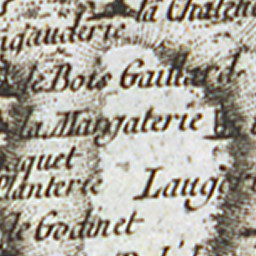 la Chateli
igauderie
le Bois Gaillard
la Mangaterie
quet
lanterie Laug
le Godinet